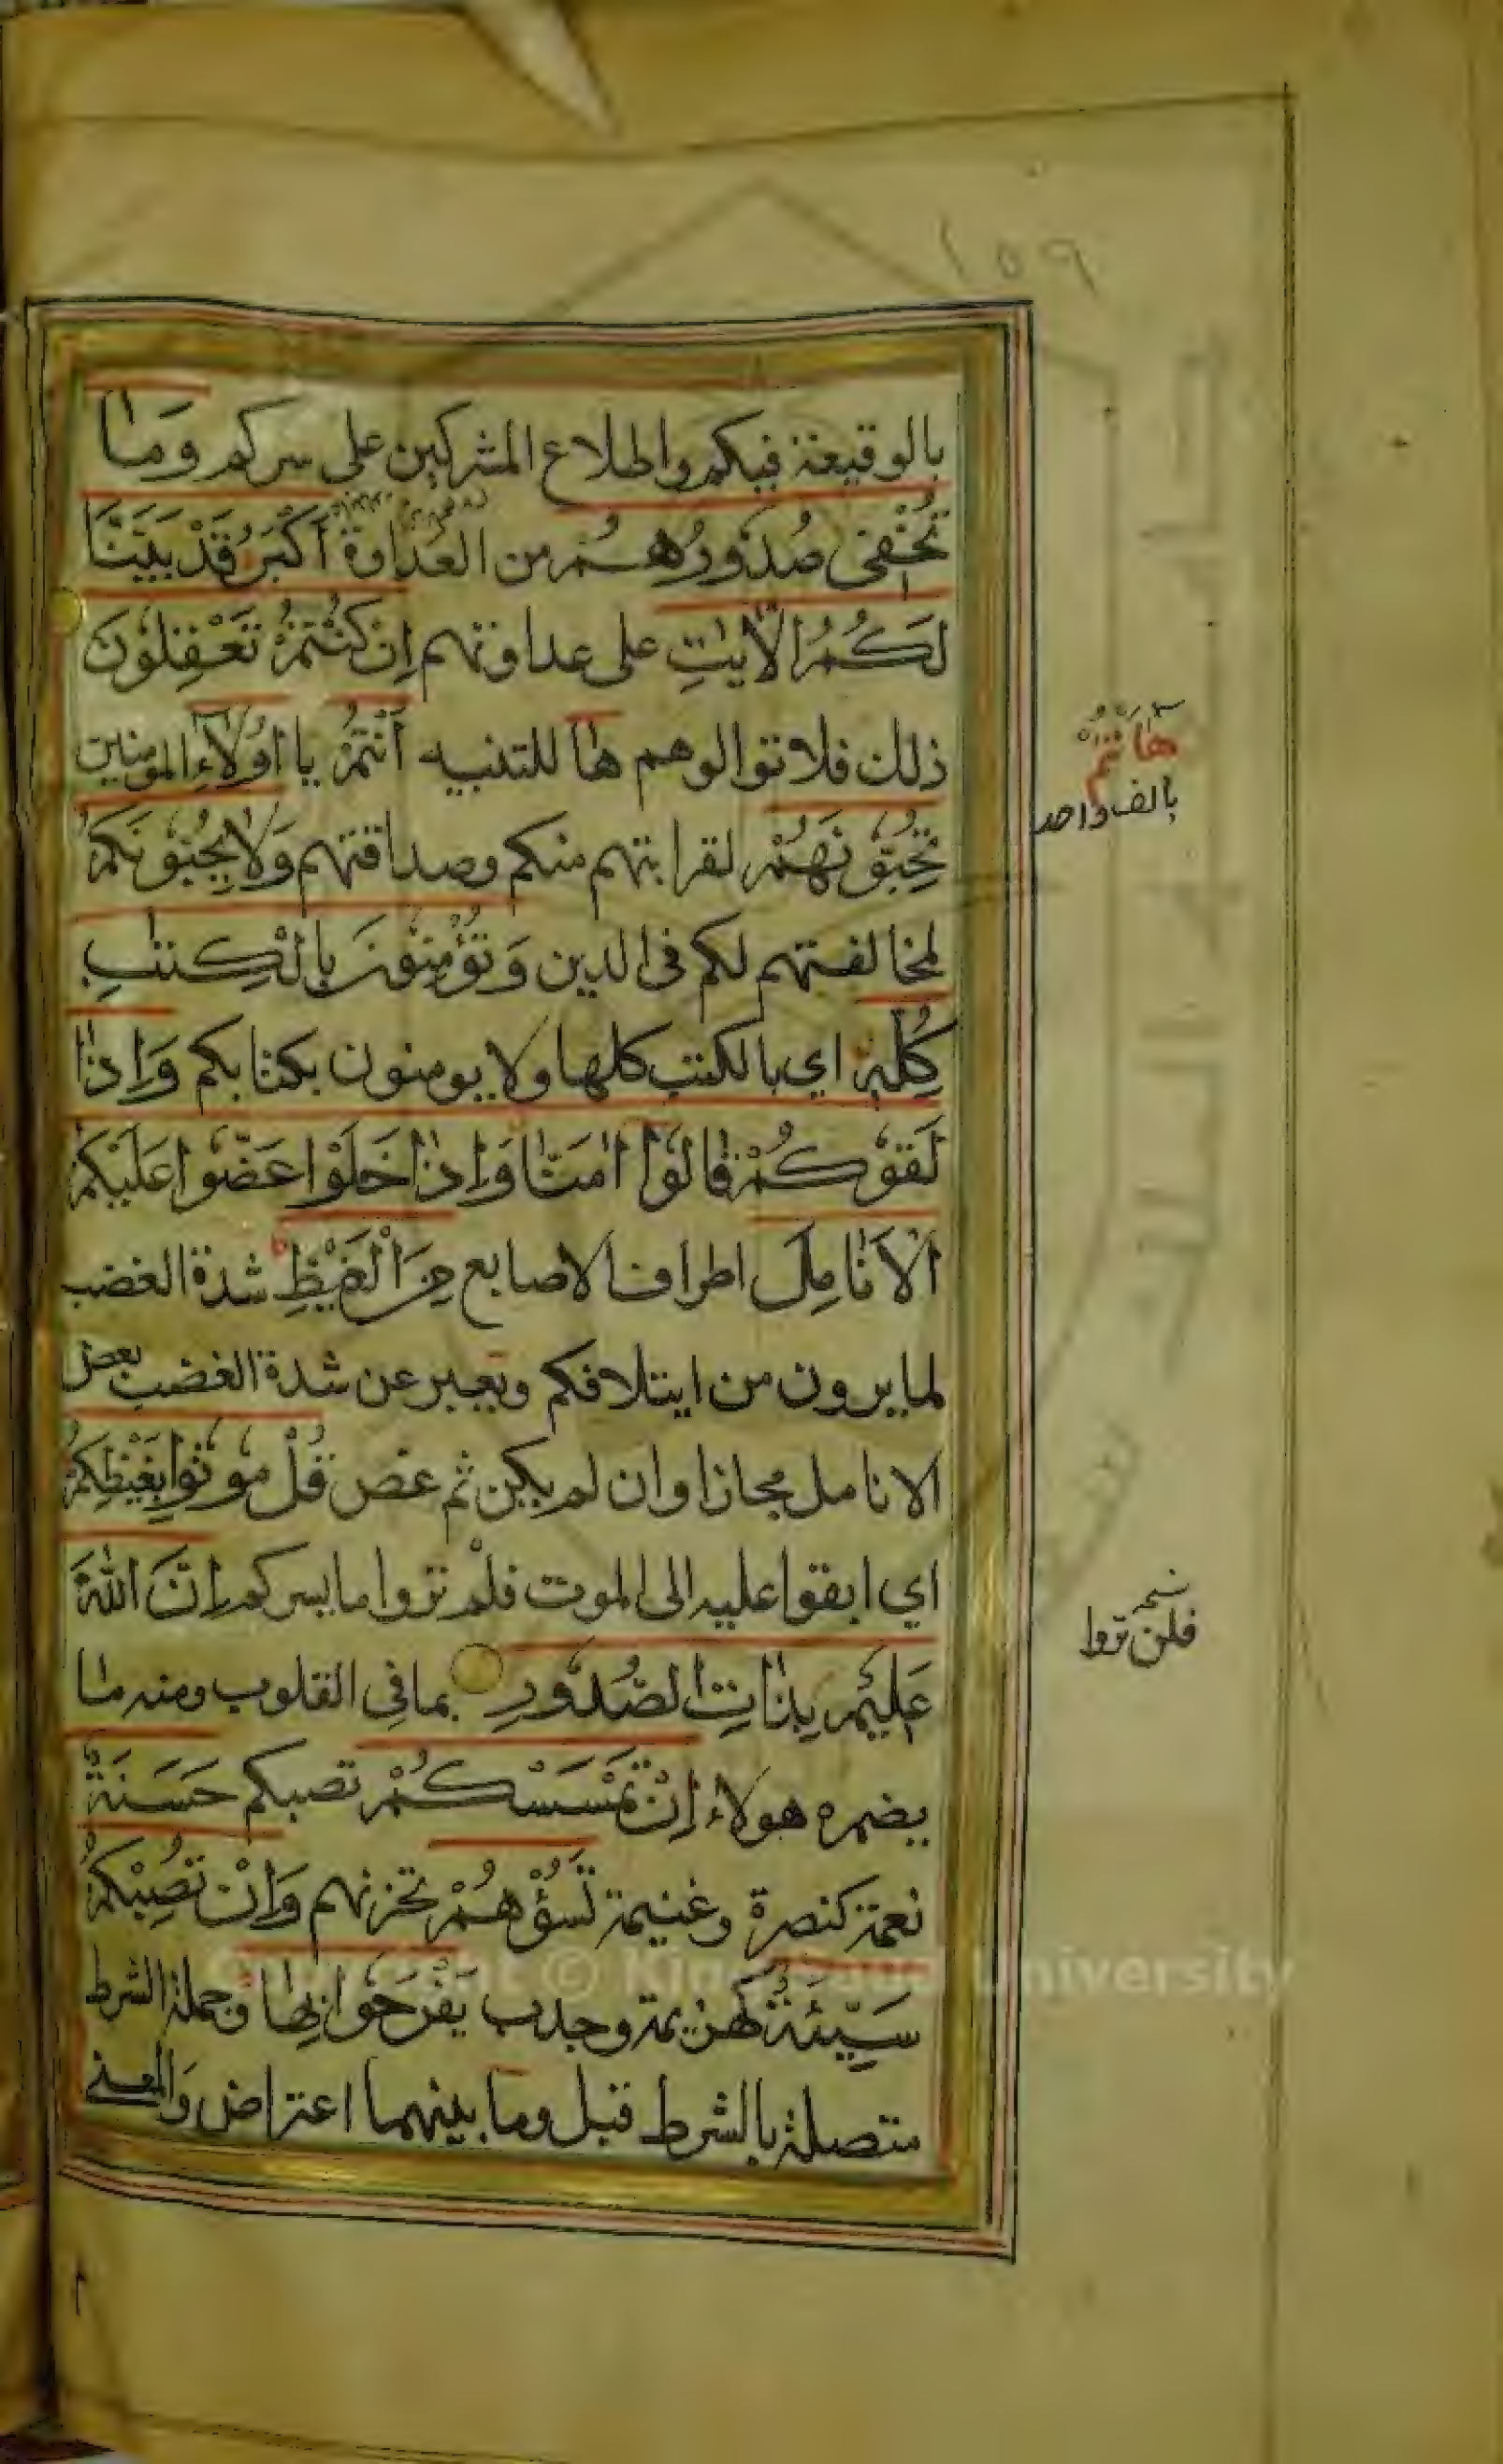 ١٥٩
بالوقيعة فيكم واطلاع المشركين على سركم وَمَا
تُخْفِي صُدُورُهُمْ من العداوة أَكْبَرُ قَدْ بَيَّنَّا
لَكُمُ الْآيٰتِ على عداوتهم اِنْ كُنْتُمْ تَعْقِلُوْنَ
ذلك فلا توالوهم هٰا للتنبيه أَنْتُمْ يا اُولَاءِ المومنين
هٰاَنْتُمْ
بالف واحد
تُحِبُّوْنَهُمْ لقرابتهم منكم وصداقتهم وَلَا يُحِبُّوْنَكُمْ
لمخالفتهم لكم فى الدين وَتُؤْمِنُوْنَ بِالْكِتٰبِ
كُلِّهٖ اي بالكتب كلها ولا يومنون بكتابكم وَاِذَا
لَقُوْكُمْ قَالُوْا اٰمَنَّا وَاِذَا خَلَوْا عَضُّوْا عَلَيْكُمُ
الْاَنَامِلَ اطراف الاصابع مِنَ الْغَيْظِ شدة الغضب
لما يرون من ايتلافكم ويعبر عن شدة الغضب بعض
الانامل مجازا وان لم يكن ثم عض قُلْ مُوْتُوْا بِغَيْظِكُمْ
اي ابقوا عليه الى الموت فلم تروا ما يسركم اِنَّ اللّٰهَ
فلن تروا
عَلِيْمٌ بِذَاتِ الصُّدُوْرِ بما في القلوب ومنه ما
يضمره هولاء اِنْ تَمْسَسْكُمْ تصبكم حَسَنَةٌ
نعمة كنصرة وغنيمة تَسُؤْهُمْ تحزنهم وَاِنْ تُصِبْكُمْ
سَيِّئَةٌ كهزيمة وجدب يَفْرَحُوْا بِهَا وجملة الشرط
متصلة بالشرط قبل وما بينهما اعتراض والمعنى
Copyright © King Saud University